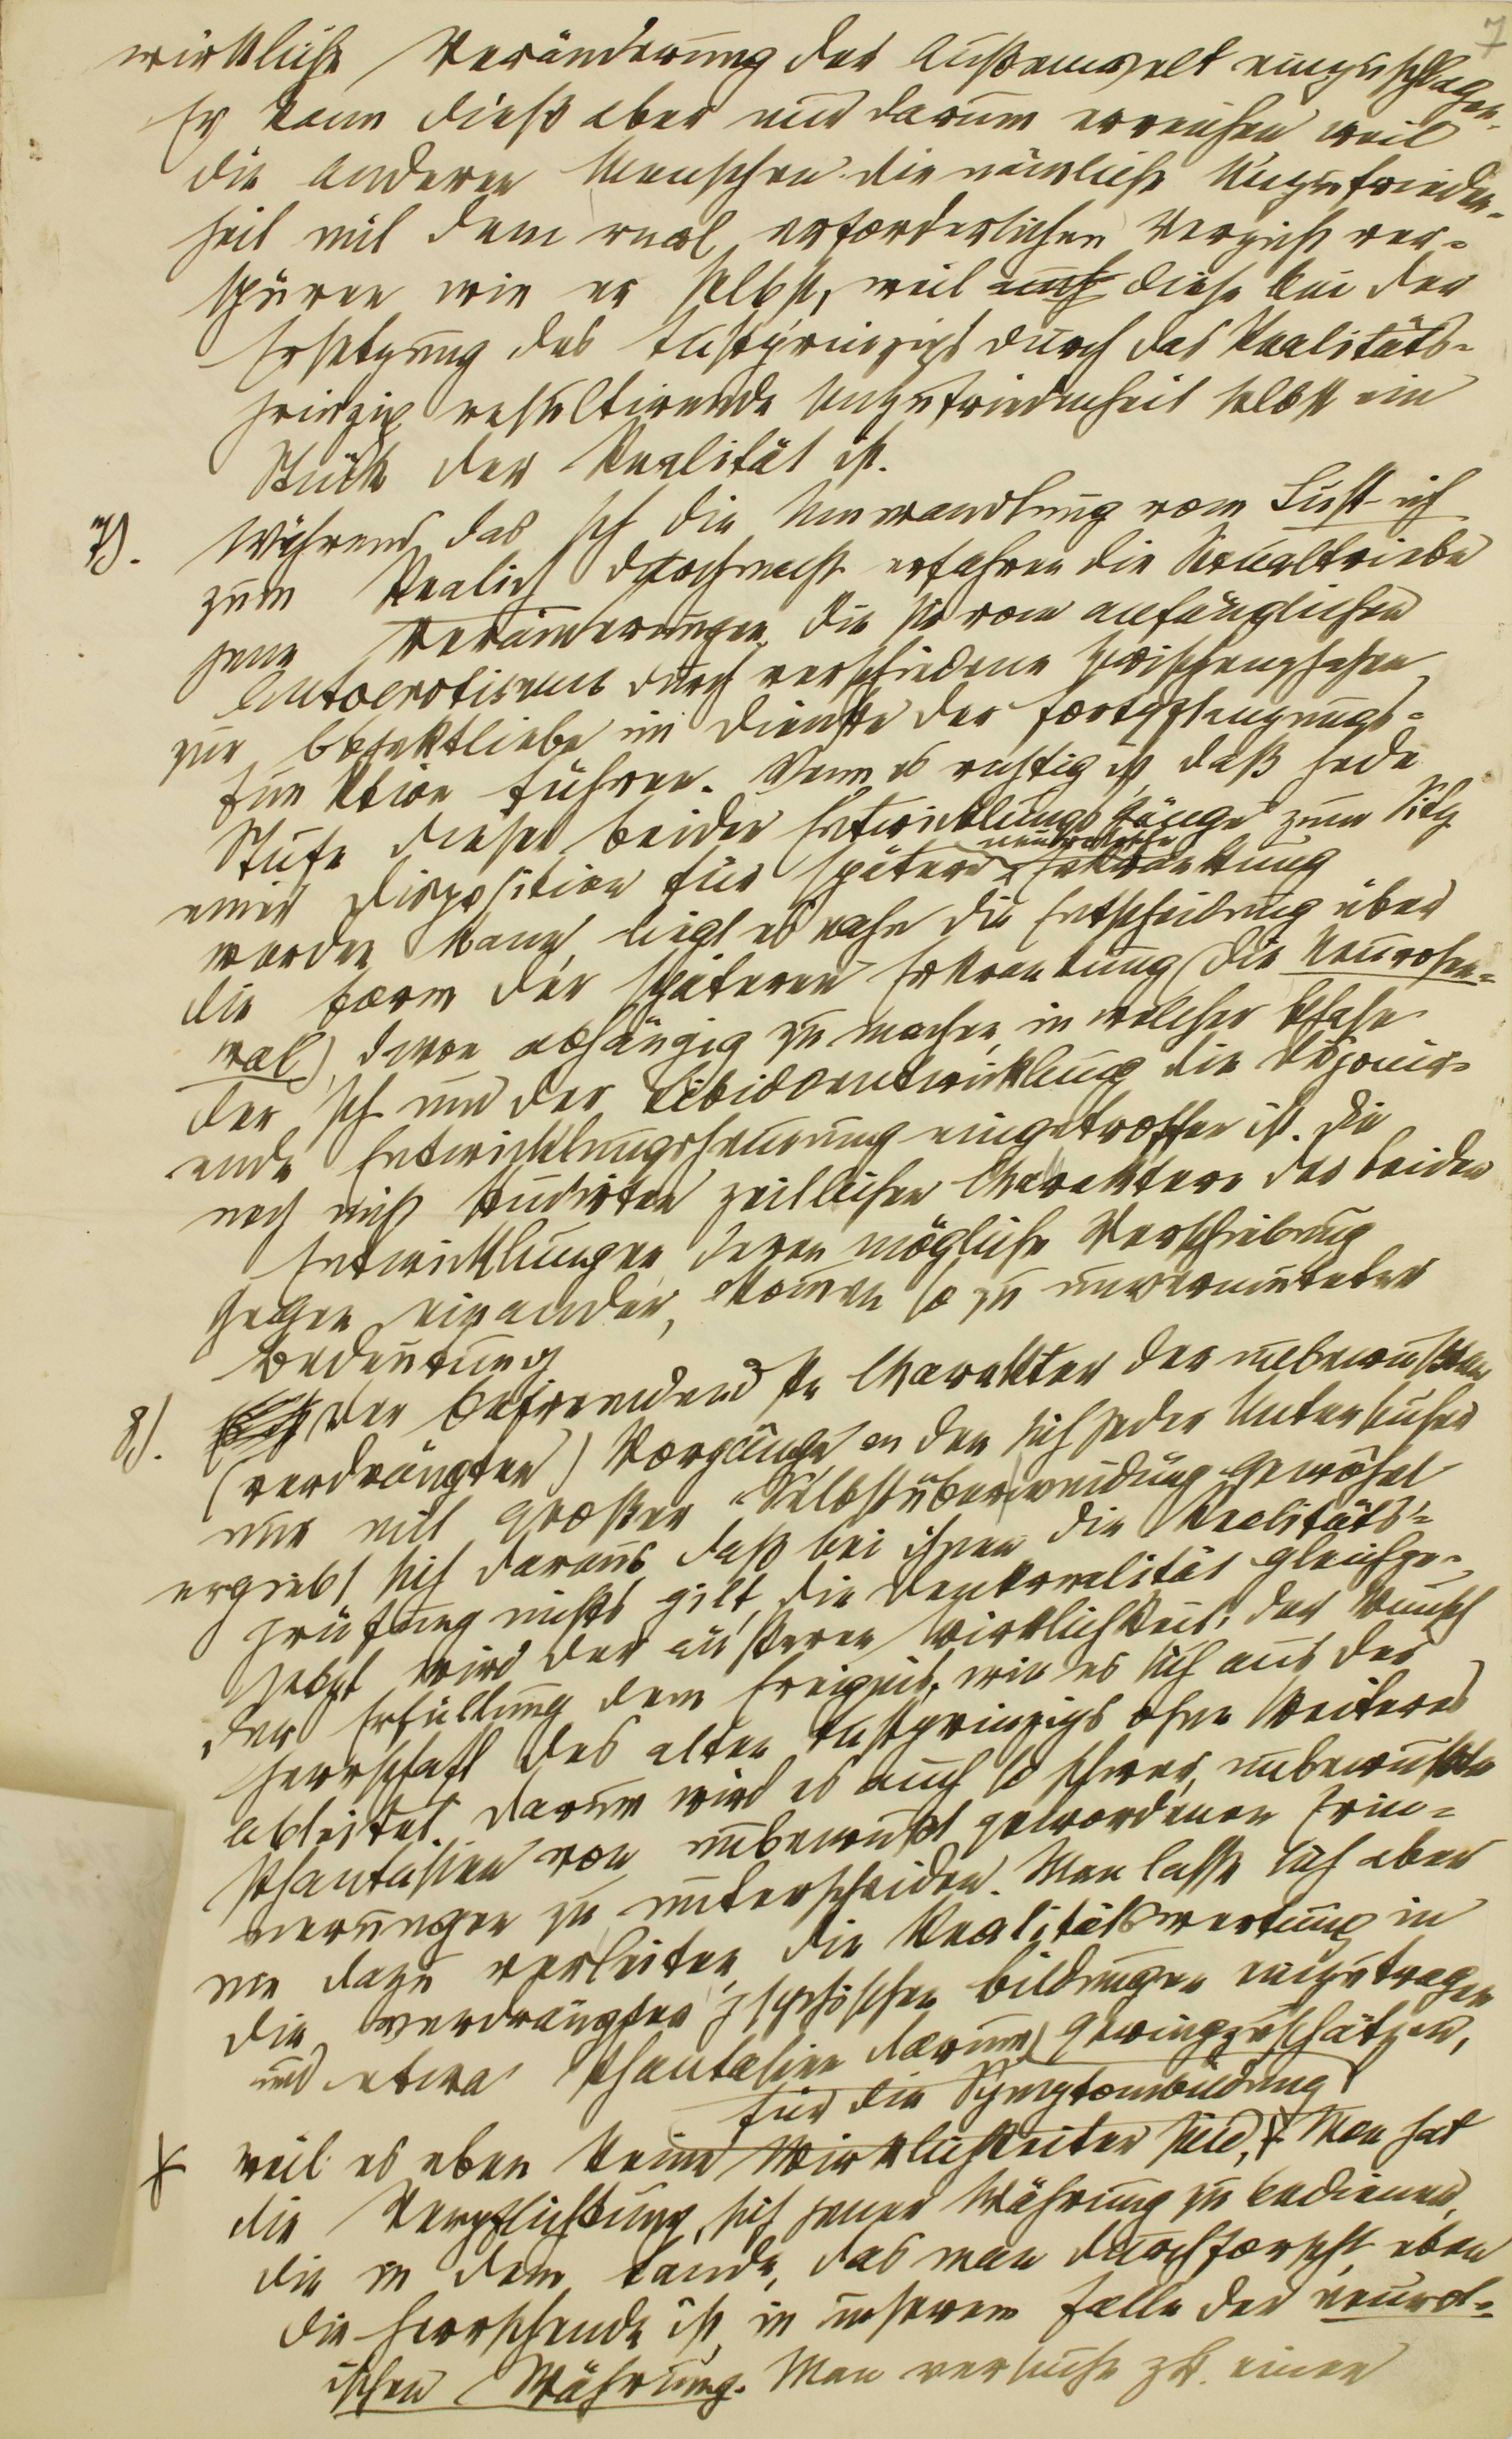 7
wirkliche Veränderung der Außenwelt einzuschlagen.
Er kann dieß aber nur darum erreichen weil
die anderen Menschen die nämliche Unzufrieden-
heit mit dem real erforderlichen Verzicht ver-
spüren wie er selbst, weil auch diese bei der
Ersetzung des Lustprinzips durch das Realitäts-
prinzip resultirende Unzufriedenheit selbst ein
Stück der Realität ist.
7). Während das Ich die Umwandlung vom Lust-ich
zum Realich durchmacht erfahren die Sexualtriebe
jene Veränderungen, die sie vom anfänglichen
Autoerotismus durch verschiedene Zwischenphasen
zur Objektliebe im Dienste der Fortpflanzungs-
funktion führen. Wenn es richtig ist, daß jede
Stufe dieser beiden Entwicklungsgänge zum Sitz
einer Disposition für spätere neurotische Erkrankung
werden kann, liegt es nahe die Entscheidung über
die Form der späteren Erkrankung (die Neurosen-
wal), davon abhängig zu machen, in welcher Phase
der Ich und der Libidoentwicklung die disponir-
ende Entwicklungshemmung eingetroffen ist. Die
noch nicht studirten zeitlichen Charaktere der beiden
Entwicklungen, deren mögliche Verschiebung
gegen einander, kommen so zu unvermuteter
Bedeutung
8). Der befremdendste Charakter der unbewußten
(verdrängten) Vorgänge, an den sich jeder Untersucher
nur mit großer Selbstüberwindung gewöhnt
ergiebt sich daraus, daß bei ihnen die Realitäts-
prüfung nichts gilt, die Denkrealität gleichge-
setzt wird der äußeren Wirklichkeit, der Wunsch
der Erfüllung dem Ereigniß, wie es sich aus der
Herrschaft des alten Lustprinzips ohne Weiteres
ableitet. Darum wird es auch so schwer, unbewußte
Phantasien von unbewußt gewordenen Erin-
nerungen zu unterscheiden. Man lasse sich aber
nie dazu verleiten, die Realitätswertung in
die verdrängten psychischen Bildungen einzutragen
und etwa Phantasien darum geringzuschätzen,
für die Symptombildung
weil es eben keine Wirklichkeiten sind, Man hat
die Verpflichtung, sich jener Währung zu bedienen,
die in dem Lande, das man durchforscht, eben
die herrschende ist, in unserem Falle der neurot-
ischen Währung. Man versuche zb. einen